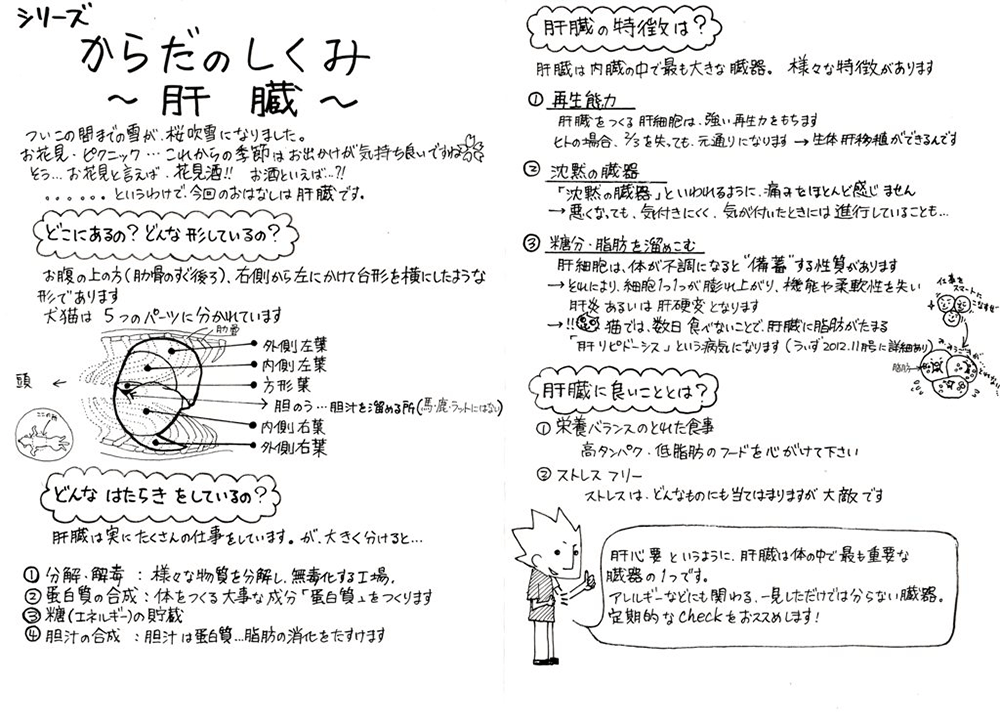 シリーズ
からだのしくみ
～肝 臓～
ついこの間までの雪が、桜吹雪になりました。
お花見・ピクニック…これからの季節はお出かけが気持ち良いですね
そう…お花見と言えば、花見酒!! お酒といえば…?!
。。。。。。というわけで、今回のおはなしは肝臓です。
どこにあるの？どんな形しているの？
お腹の上の方(肋骨のすぐ後ろ)、右側から左にかけて台形を横にしたような
形であります
犬猫は 5つのパーツに分かれています
肋骨
外側左葉
内側左葉
頭 ←
方形葉
胆のう…胆汁を溜める所(馬・鹿・ラットにはない)
ココの所
内側右葉
外側右葉
どんな はたらき をしているの？
肝臓は実にたくさんの仕事をしています。が、大きく分けると…
① 分解・解毒 : 様々な物質を分解し、無毒化する工場。
② 蛋白質の合成 : 体をつくる大事な成分「蛋白質」をつくります
③ 糖(エネルギー)の貯蔵
④ 胆汁の合成 : 胆汁は蛋白質…脂肪の消化をたすけます
肝臓の特徴は？
肝臓は内臓の中で最も大きな臓器。 様々な特徴があります
① 再生能力
肝臓をつくる肝細胞は、強い再生力をもちます
ヒトの場合、2/3を失っても、元通りになります → 生体肝移植ができるんです
② 沈黙の臓器
「沈黙の臓器」といわれるように、痛みをほとんど感じません
→ 悪くなっても、気付きにくく、気が付いたときには進行していることも…
③ 糖分・脂肪を溜めこむ
肝細胞は、体が不調になると“備蓄”する性質があります
→ それにより、細胞1つ1つが膨れ上がり、機能や柔軟性を失い
肝炎あるいは肝硬変となります
→ !! 猫では、数日食べないことで、肝臓に脂肪がたまる
「肝リピドーシス」という病気になります (うぃず2012.11月号に詳細あり)
仕事を
スマートに
こなすぜ
脂肪→
肝臓に良いこととは？
① 栄養バランスのとれた食事
高タンパク・低脂肪のフードを心がけて下さい
② ストレスフリー
ストレスは、どんなものにも当てはまりますが 大敵です
肝心要というように、肝臓は体の中で最も重要な
臓器の1つです。
アレルギーなどにも関わる、一見しただけでは分らない臓器。
定期的なCheckをおススメします！